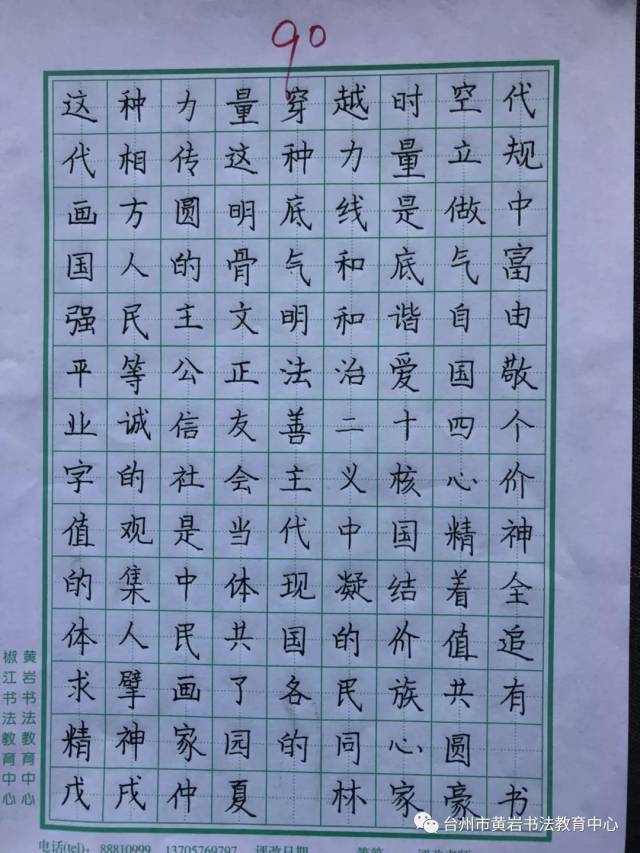 90
这种力量穿越时空代
代相传这种力量立规
画方圆明底线是做中
国人的骨气和底气富
强民主文明和谐自由
平等公正法治爱国敬
业诚信友善二十四个
字的社会主义核心价
值观是当代中国精神
的集中体现凝结着全
体人民共国的价值追
求擘画了各民族共有
精神家园的同心圆
戊戌仲夏 林家豪书
黄岩书法教育中心
椒江书法教育中心
电话(tel): 88810999 13705769797 评改日期
台州市黄岩书法教育中心